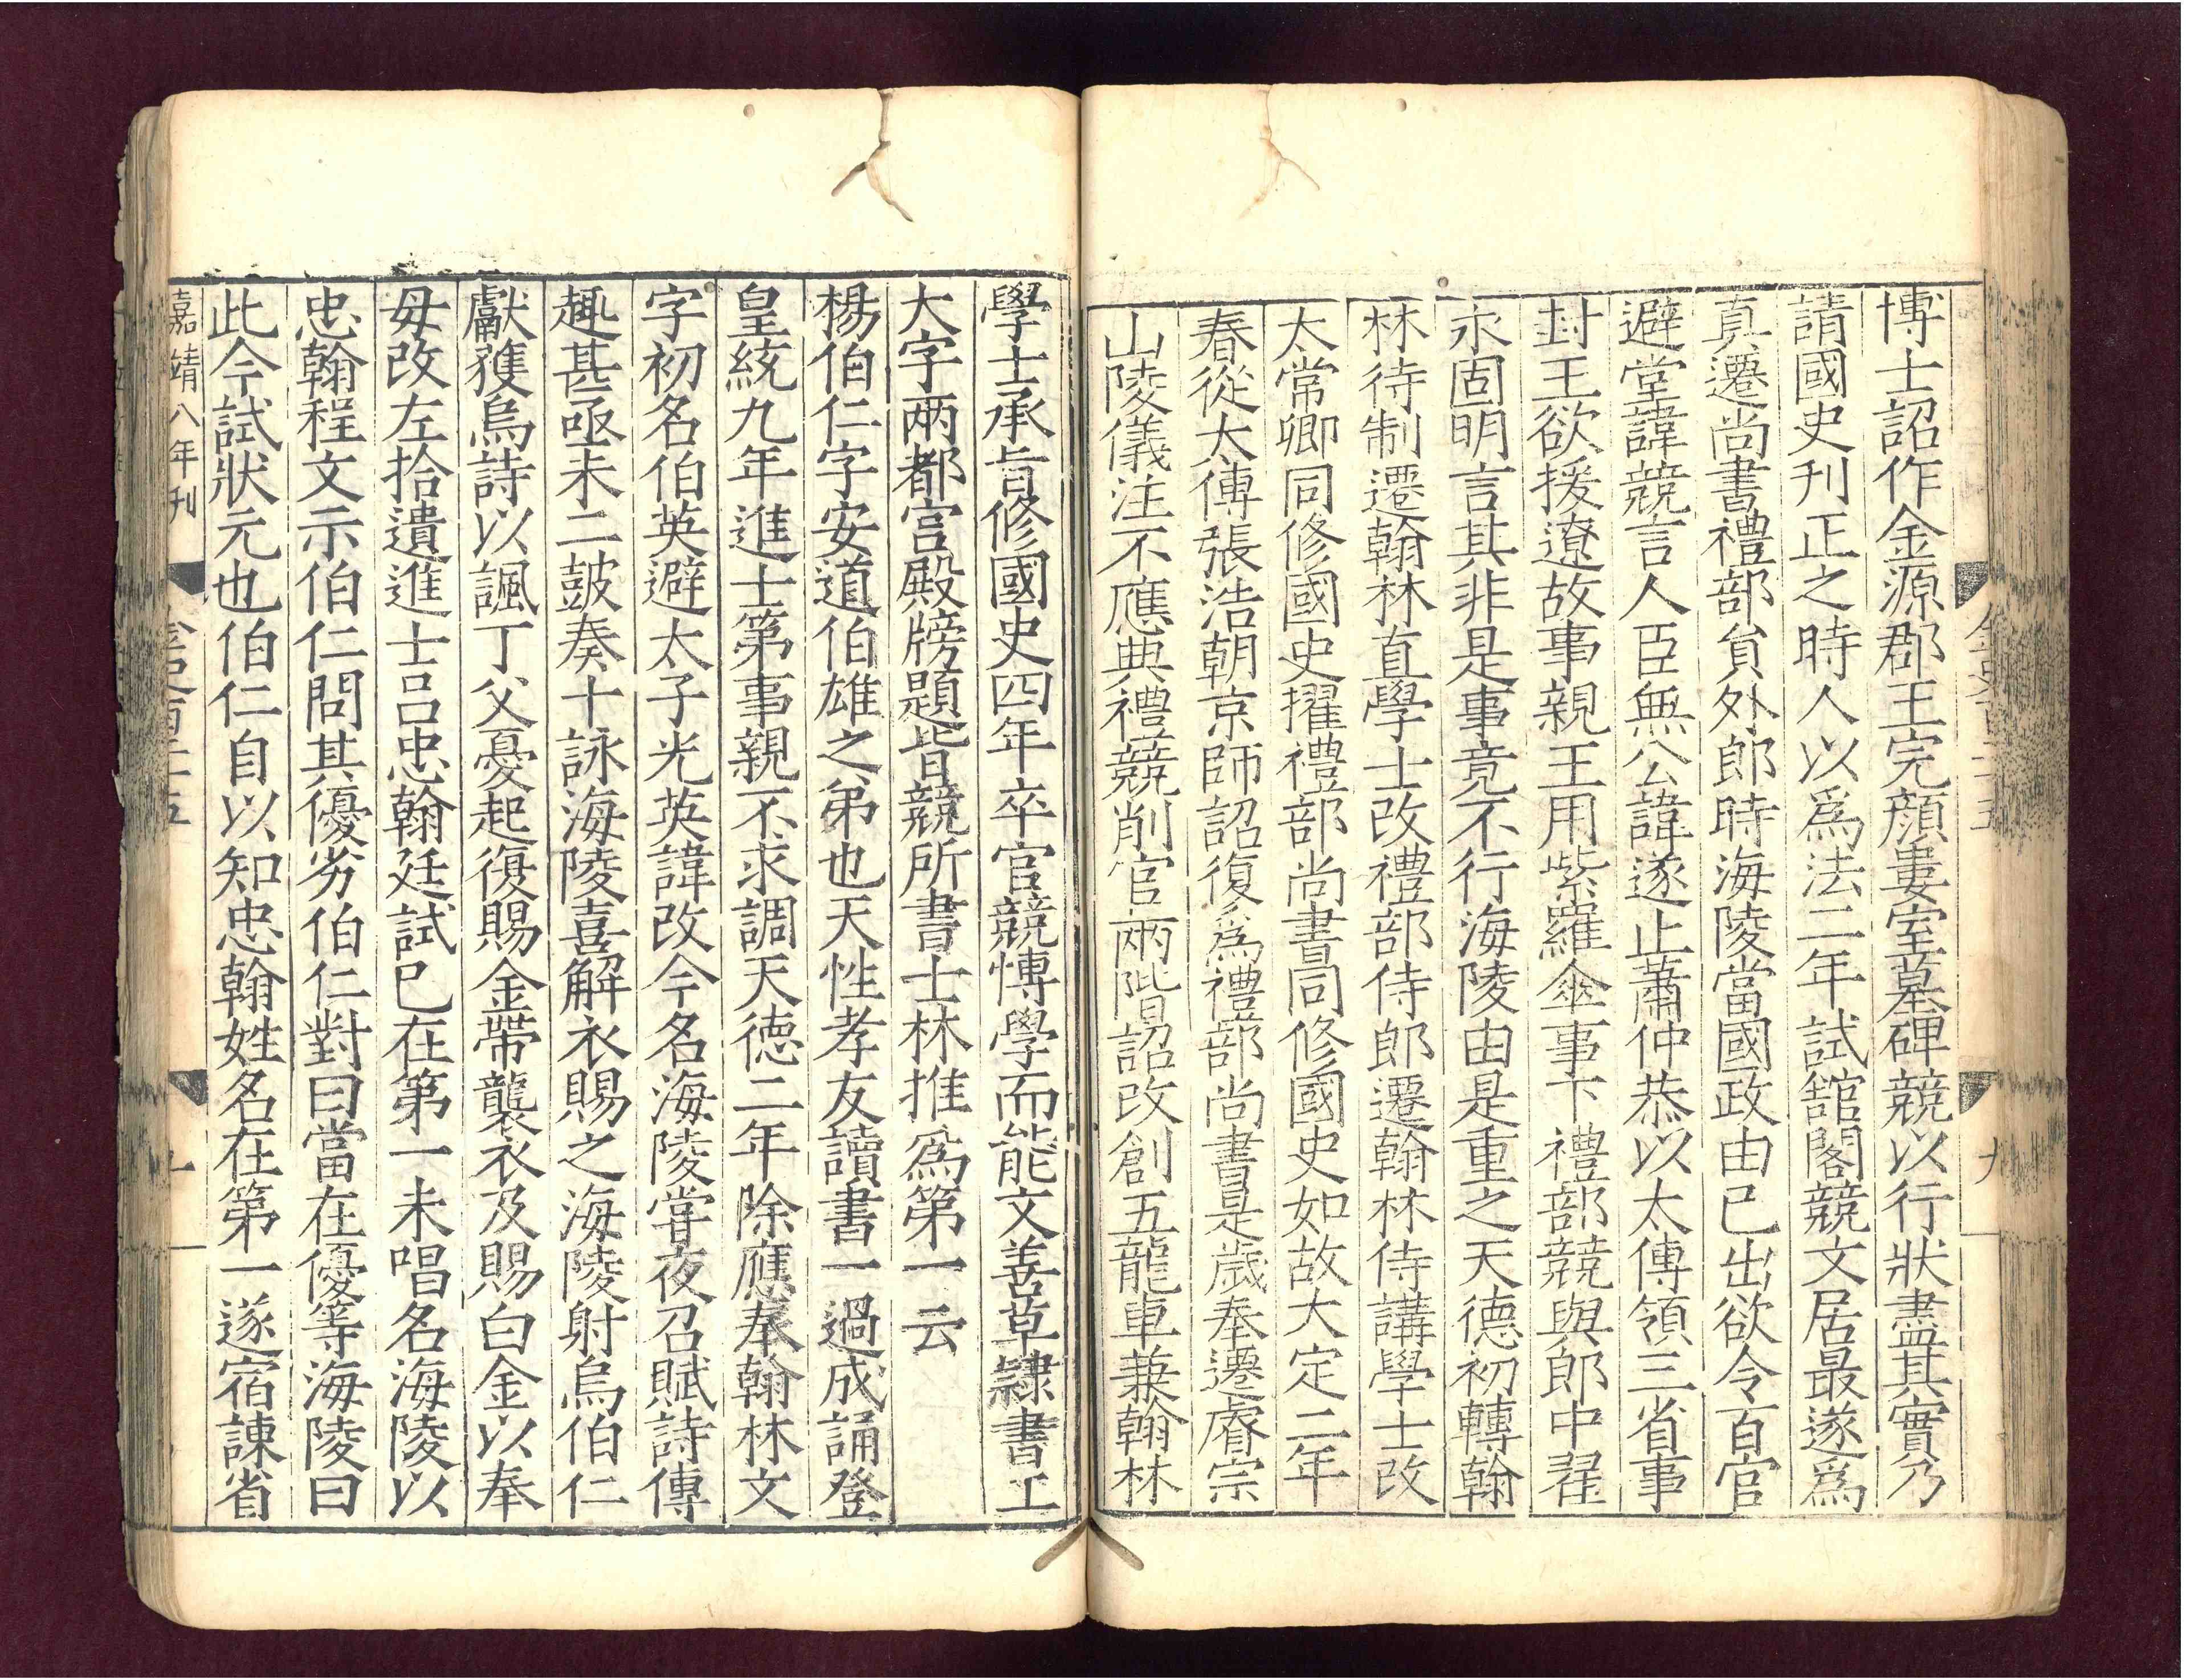 金史百二十五
九
博士詔作金源郡王完顏婁室墓碑競以行狀盡其實乃
請國史刊正之時人以爲法二年試館閣競文居最遂爲
真遷尚書禮部貟外郎時海陵當國政由己出欲令百官
避堂諱競言人臣無公諱遂止蕭仲恭以太傅領三省事
封王欲援遼故事親王用紫羅傘事下禮部競與郎中翟
永固明言其非是事竟不行海陵由是重之天德初轉翰
林待制遷翰林直學士改禮部侍郎遷翰林侍講學士改
太常卿同修國史擢禮部尚書同修國史如故大定二年
春從太傅張浩朝京師詔復爲禮部尚書是歲奉遷睿宗
山陵儀注不應典禮競削官兩階詔改創五龍車兼翰林
學士承旨修國史四年卒官競博學而能文善草隸書工
大字兩都宮殿牓題皆競所書士林推爲第一云
楊伯仁字安道伯雄之弟也天性孝友讀書一過成誦登
皇統九年進士第事親不求調天德二年除應奉翰林文
字初名伯英避太子光英諱改今名海陵甞夜召賦詩傳
趣甚亟未二皷奏十詠海陵喜解衣賜之海陵射烏伯仁
獻獲烏詩以諷丁父憂起復賜金帶襲衣及賜白金以奉
母改左拾遺進士呂忠翰廷試已在第一未唱名海陵以
忠翰程文示伯仁問其優劣伯仁對曰當在優等海陵曰
此今試狀元也伯仁自以知忠翰姓名在第一遂宿諫省
嘉靖八年刊